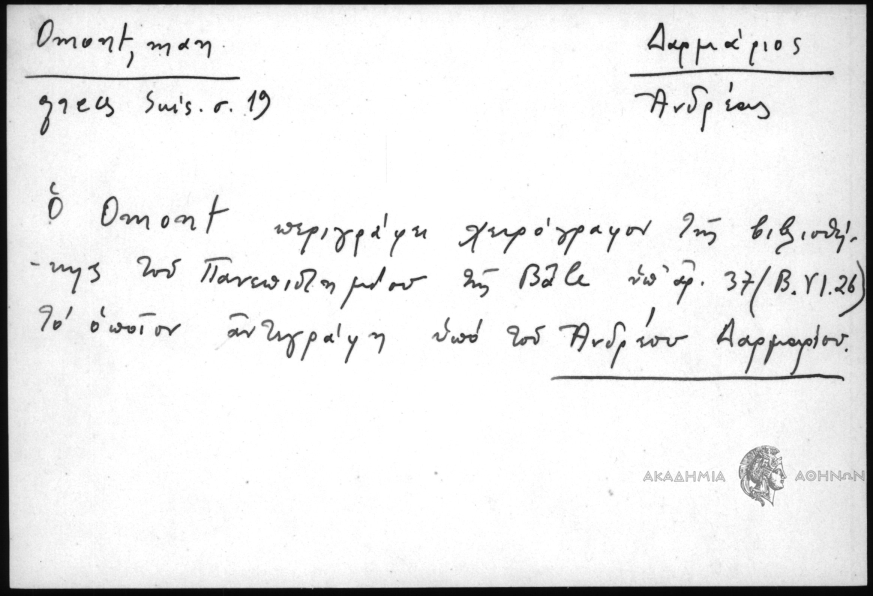 Omont, man.
grecs Suis. σ. 19
Δαρμάριος
Ἀνδρέας
Ὁ Omont περιγράφει χειρόγραφον τῆς βιβλιοθή-
-κης τοῦ Πανεπιστημίου τῆς Bâle ὑπ' ἀρ. 37 (B. VI. 26)
τὸ ὁποῖον ἀντιγράφη ὑπὸ τοῦ Ἀνδρέου Δαρμαρίου.
ΑΚΑΔΗΜΙΑ ΑΘΗΝΩΝ